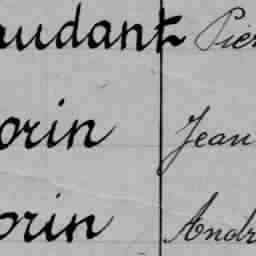 audant Pier
orin Jean
orin Andr